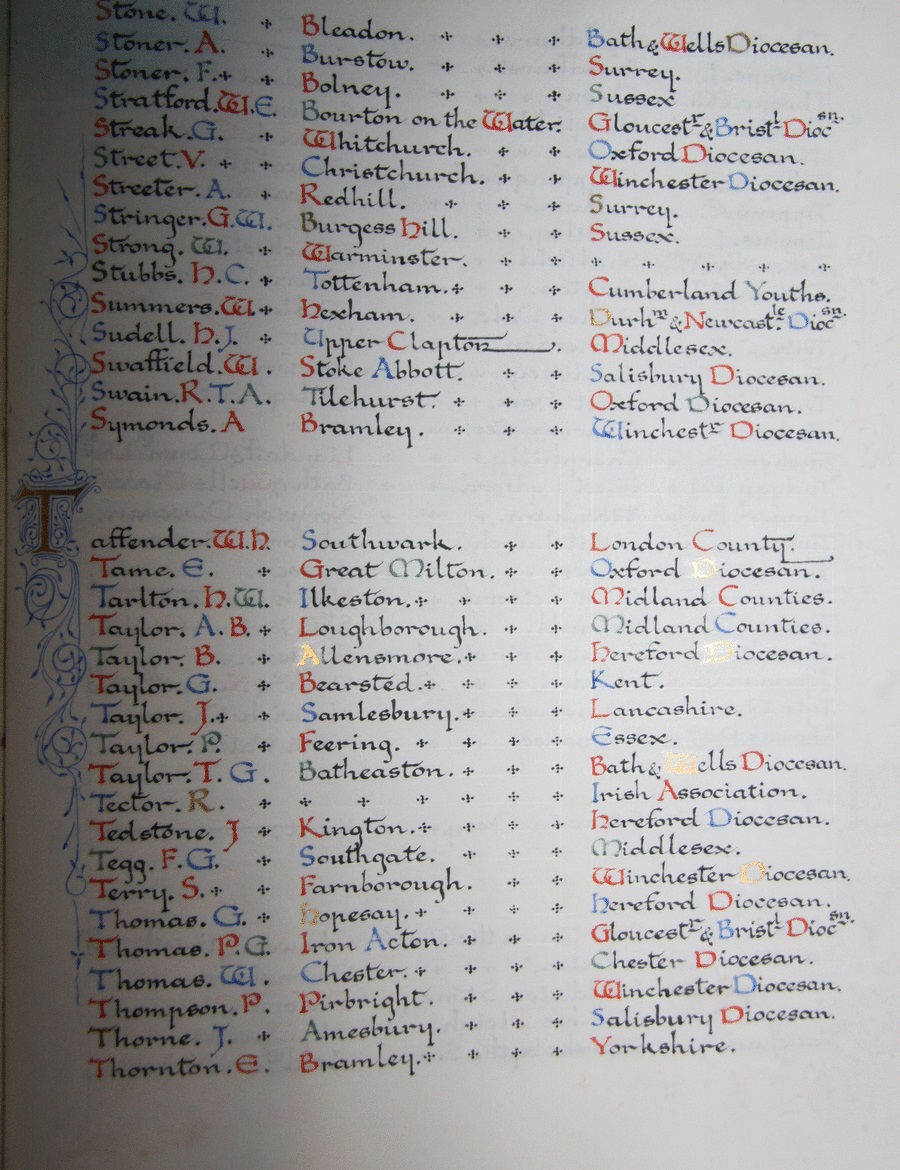 Stone. W. Bleadon. Bath & Wells Diocesan.
Stoner. A. Burstow. Surrey.
Stoner. F. Bolney. Sussex
Stratford. W. E. Bourton on the Water. Gloucestr & Bristl Diocsn.
Streak. G. Whitchurch. Oxford Diocesan.
Street. V. Christchurch. Winchester Diocesan.
Streeter. A. Redhill. Surrey.
Stringer. G. W. Burgess Hill. Sussex.
Strong. W. Warminster.
Stubbs. H. C. Tottenham. Cumberland Youths.
Summers. W. Hexham. Durhm & Newcastle Diocsn.
Sudell. H. J. Upper Clapton. Middlesex.
Swaffield. W. Stoke Abbott. Salisbury Diocesan.
Swain. R. T. A. Tilehurst. Oxford Diocesan.
Symonds. A Bramley. Winchestr Diocesan.
Taffender. W. H. Southwark. London County.
Tame. E. Great Milton. Oxford Diocesan.
Tarlton. H. W. Ilkeston. Midland Counties.
Taylor. A. B. Loughborough. Midland Counties.
Taylor. B. Allensmore. Hereford Diocesan.
Taylor. G. Bearsted. Kent.
Taylor. J. Samlesbury. Lancashire.
Taylor. P. Feering. Essex.
Taylor. T. G. Batheaston. Bath & Wells Diocesan.
Tector. R. Irish Association.
Tedstone. J Kington. Hereford Diocesan.
Tegg. F. G. Southgate. Middlesex.
Terry. S. Farnborough. Winchester Diocesan.
Thomas. G. Hopesay. Hereford Diocesan.
Thomas. P. G. Iron Acton. Gloucestr & Bristl Diocsn.
Thomas. W. Chester. Chester Diocesan.
Thompson. P. Pirbright. Winchester Diocesan.
Thorne. J. Amesbury. Salisbury Diocesan.
Thornton. E. Bramley. Yorkshire.